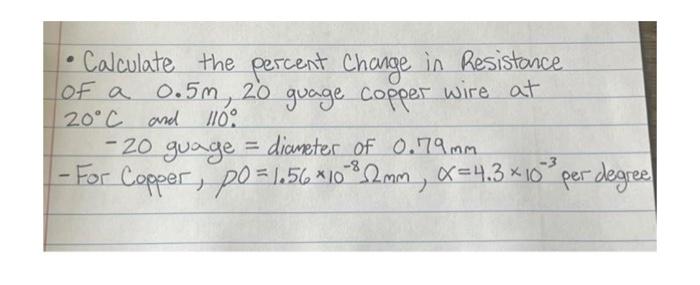 • Calculate the percent Change in Resistance
of a 0.5m, 20 guage copper wire at
20°C and 110°.
- 20 guage = diameter of 0.79mm
- For Copper, ρ0 = 1.56 × 10⁻⁸ Ωmm, α = 4.3 × 10⁻³ per degree